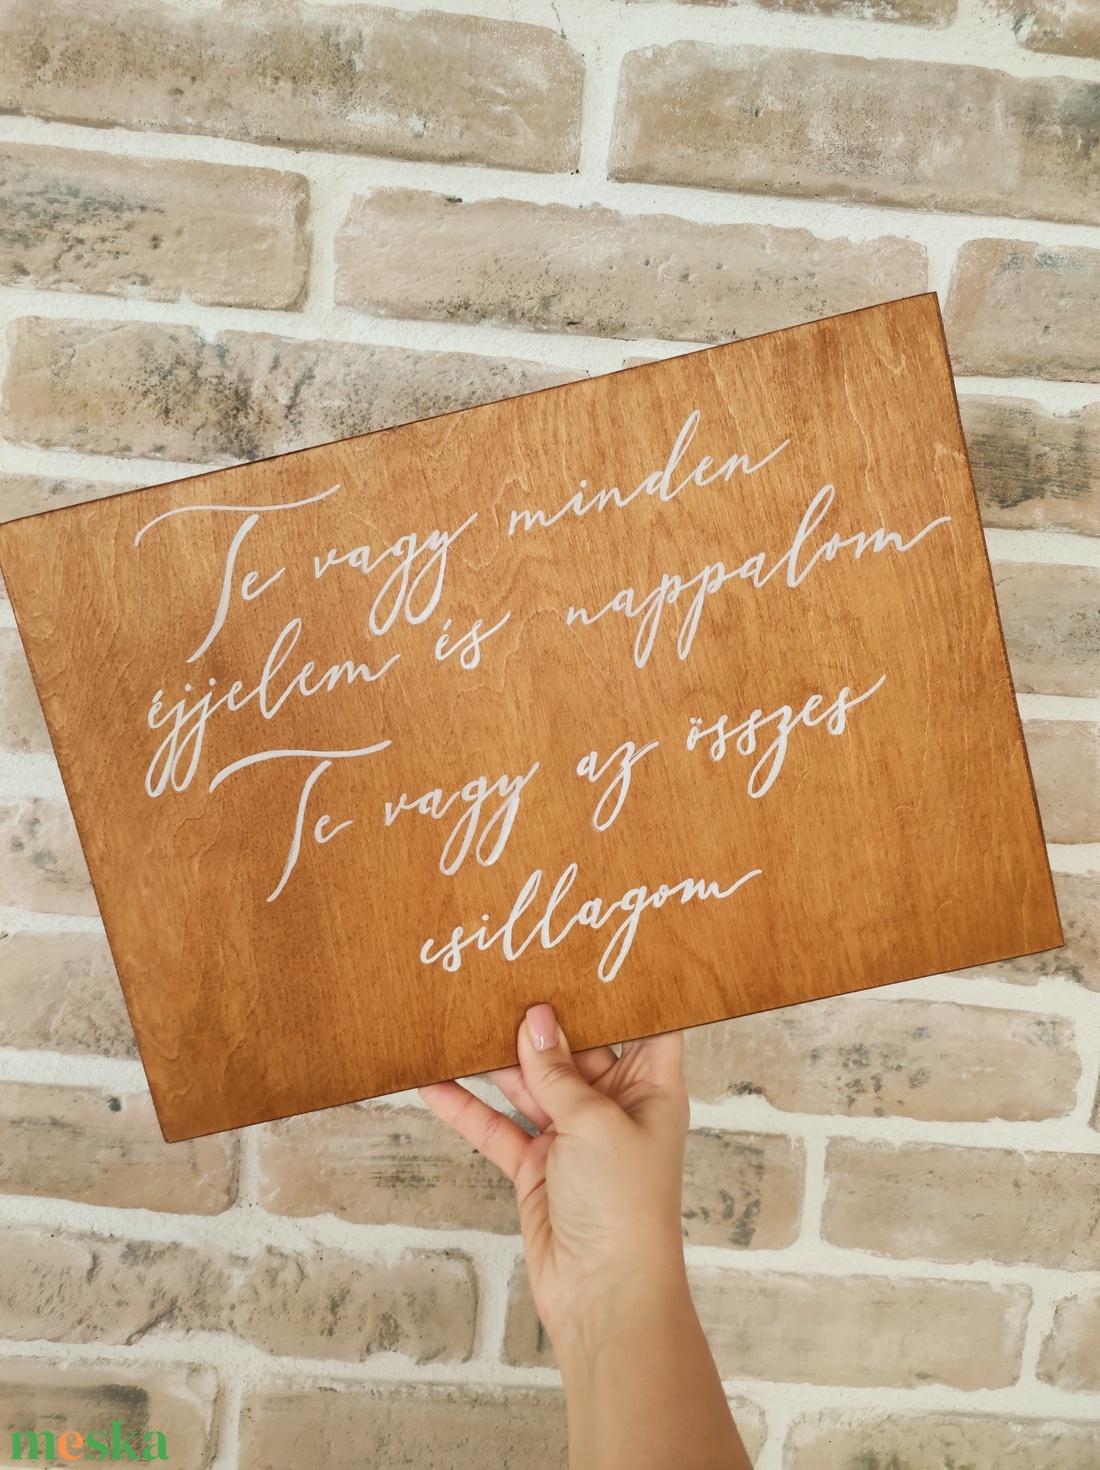 Te vagy minden
éjjelem és nappalom
Te vagy az összes
csillagom
meska